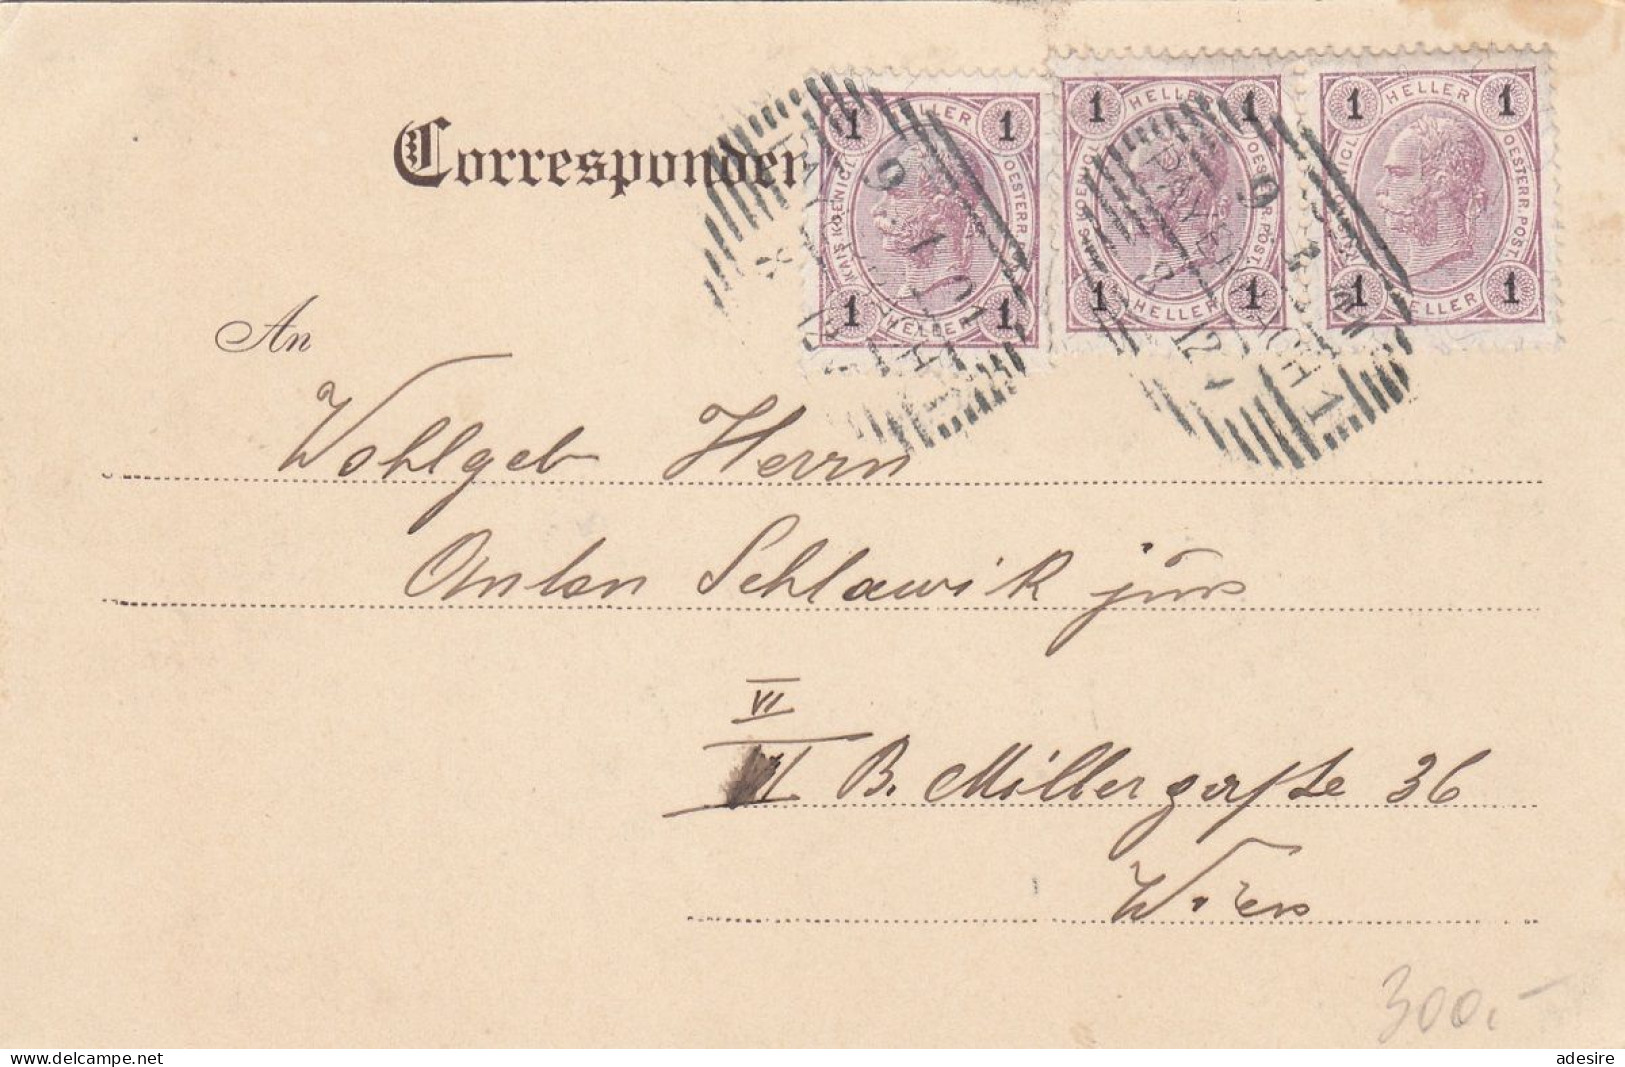 Corresponden
An
1 HELLER 1
KAIS. KOENIGL.
OESTERR. POST.
1 HELLER 1
1 HELLER 1
KAIS. KOENIGL.
OESTERR. POST.
1 HELLER 1
1 HELLER 1
OESTERR. POST.
1 HELLER 1
PAYERBACH 1
Wohlgeb Herrn
Anton Schlawik jun
VI
VI B. Millergasse 36
Wien
300,-
delcampe.net
adesire